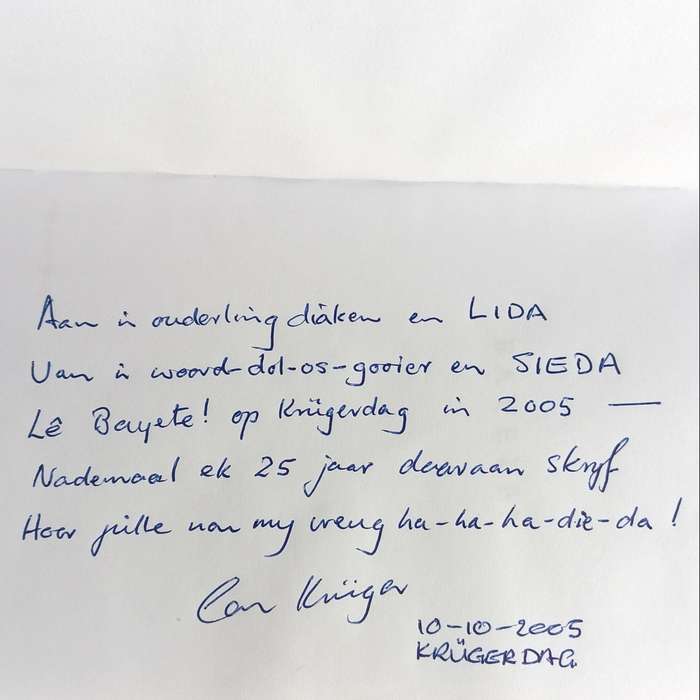 Aan 'n ouderling diáken en LIDA
Van 'n woord-dol-os-gooier en SIEDA
Lê Bayete! op Krügerdag in 2005 —
Nademaal ek 25 jaar daaraan skryf
Hoor julle nou my vreug ha-ha-ha-die-da!
Lou Krüger
10-10-2005
KRÜGERDAG.